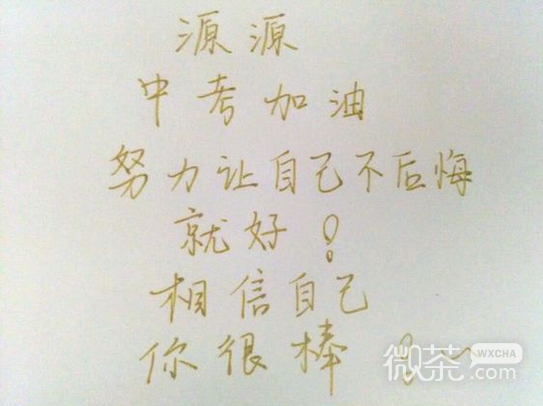 源源
中考加油
努力让自己不后悔
就好！
相信自己
你很棒！~
微茶
WXCHA
.com